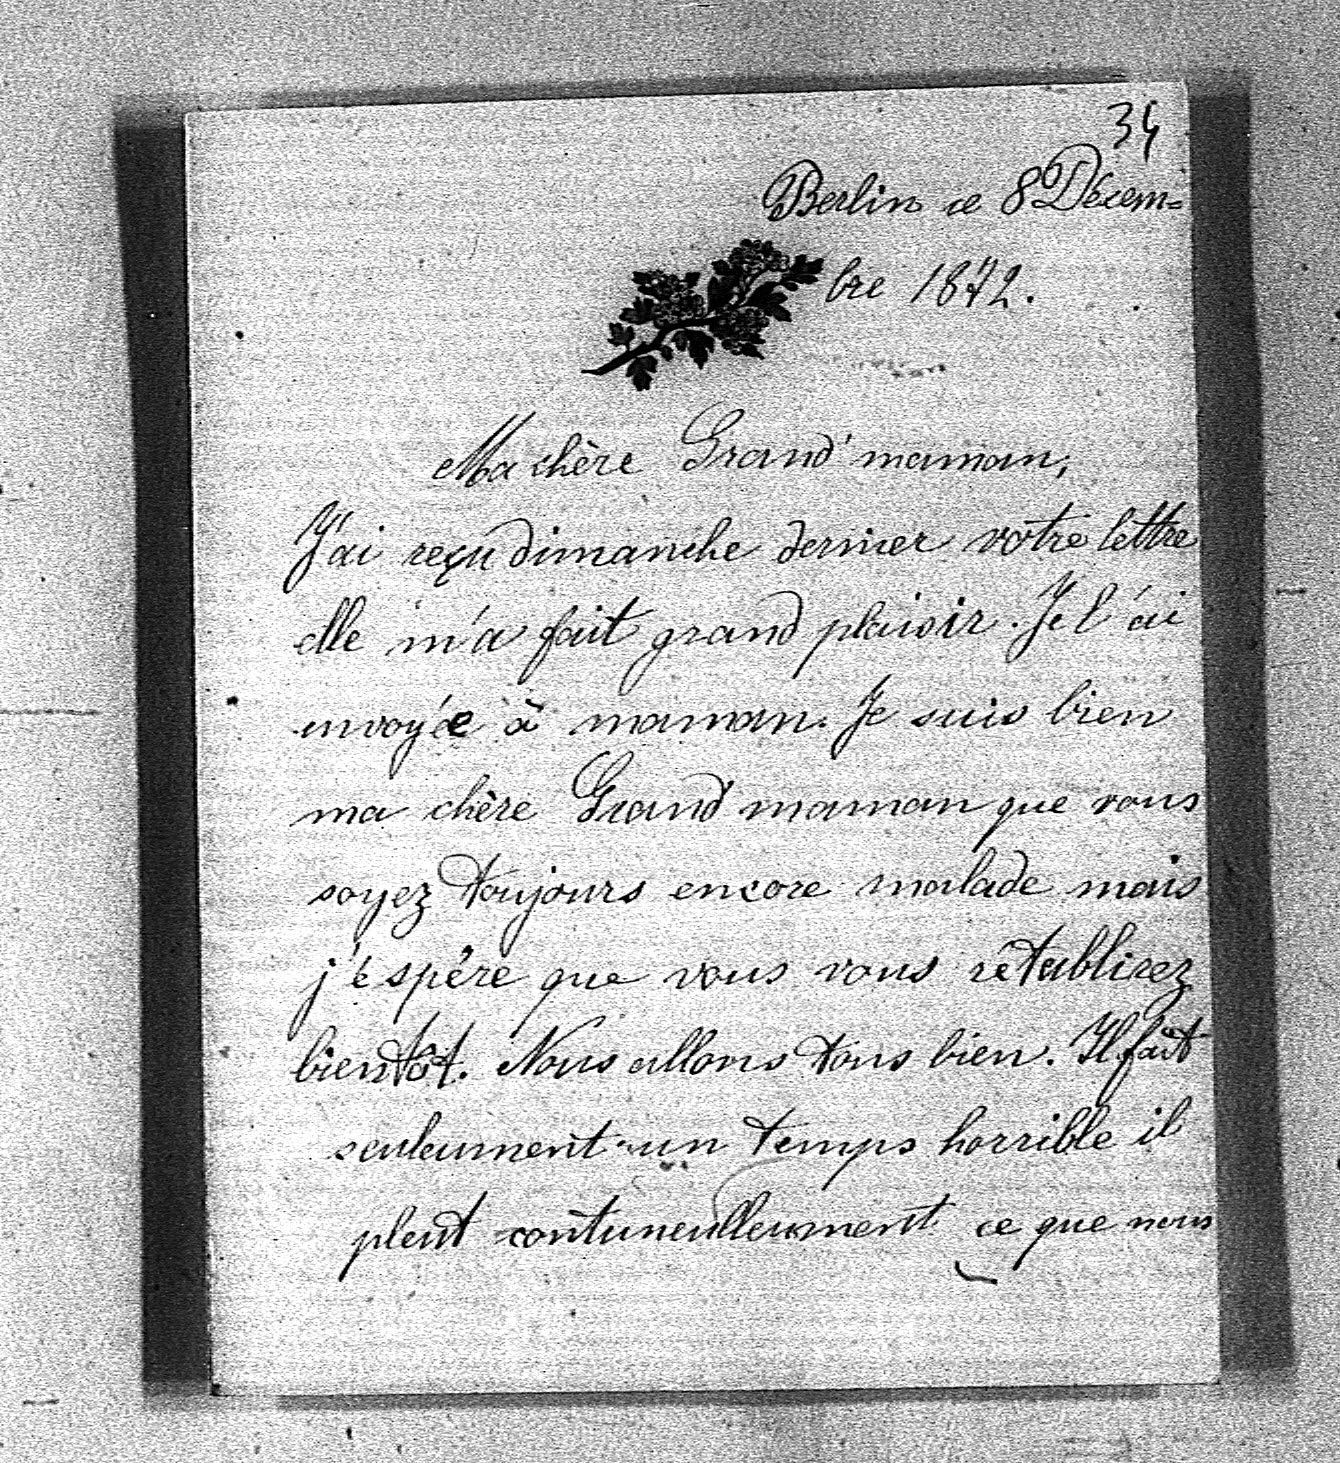 34
Berlin ce 8 Décem=
bre 1872.
Ma chère Grand'maman,
J'ai reçu dimanche dernier votre lettre
elle m'a fait grand plaisir. Je l'ai
envoyée à maman. Je suis bien
ma chère Grand'maman que vous
soyez toujours encore malade mais
j'éspère que vous vous rétablirez
bientôt. Nous allons tous bien. Il fait
seuleument un temps horrible il
pleut contuneulleument ce que nous